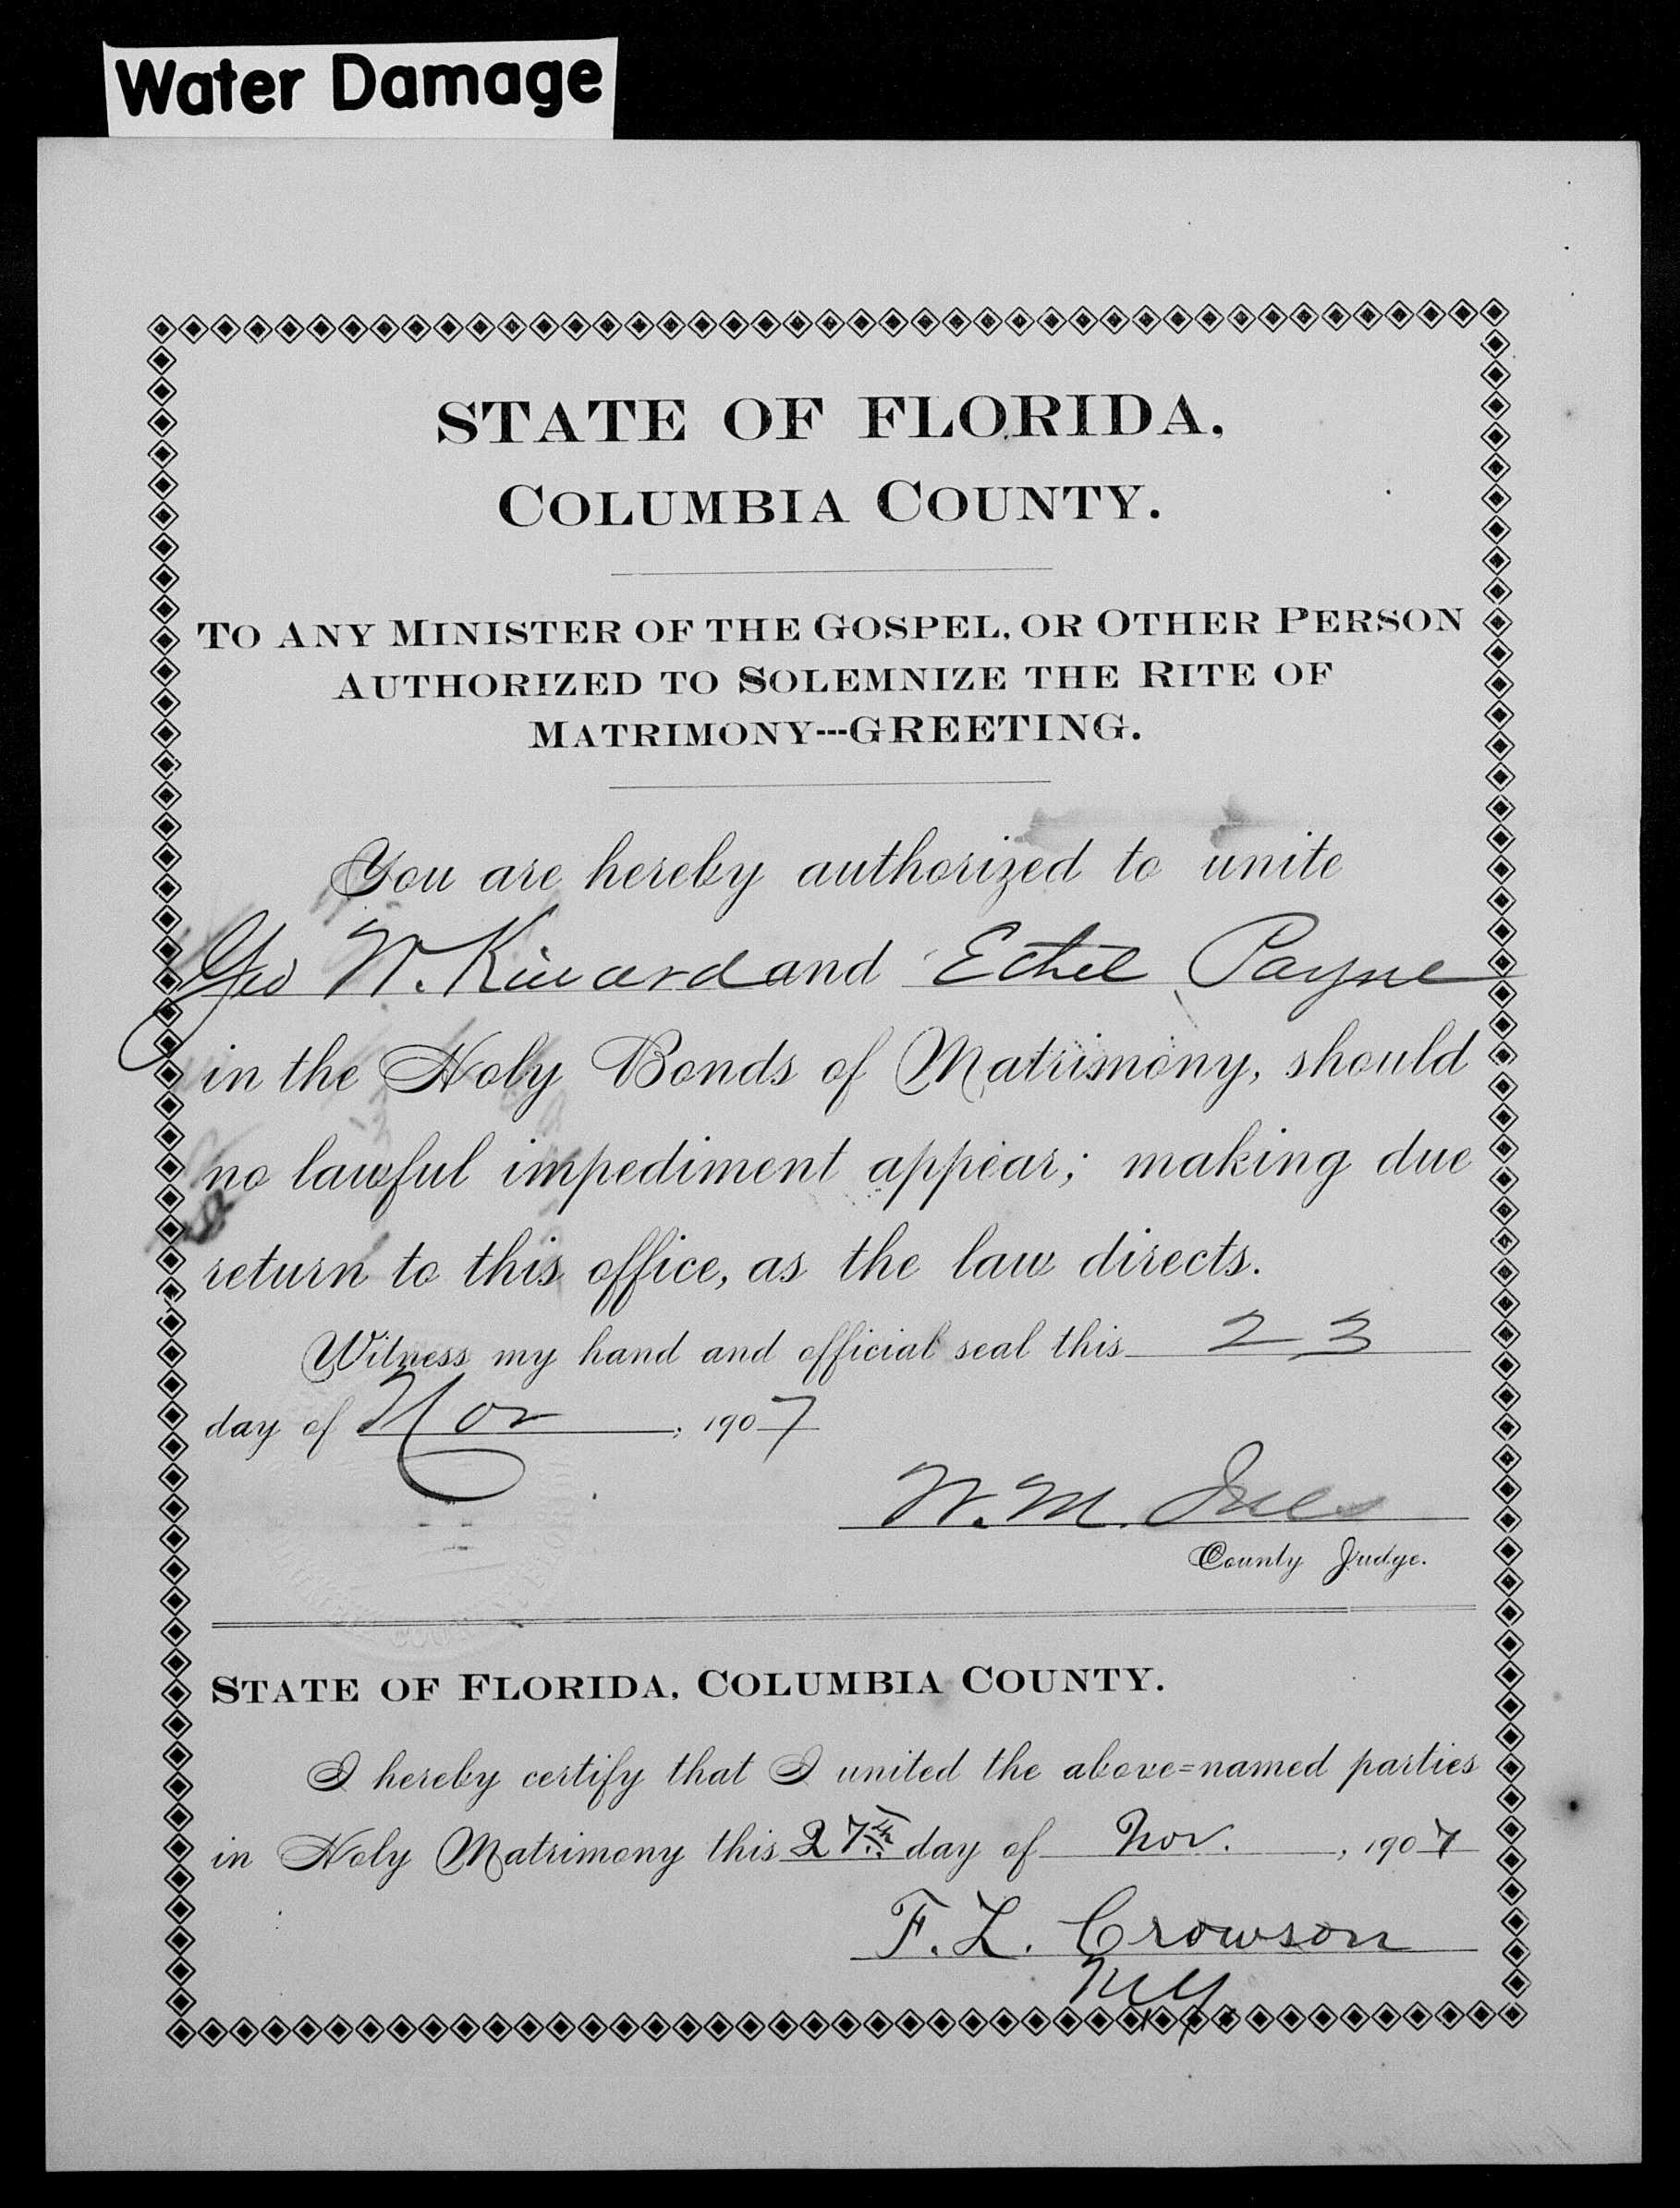 Water Damage
STATE OF FLORIDA,
COLUMBIA COUNTY.
TO ANY MINISTER OF THE GOSPEL, OR OTHER PERSON
AUTHORIZED TO SOLEMNIZE THE RITE OF
MATRIMONY---GREETING.
You are hereby authorized to unite
Geo W. Kinard and Ethel Payne
in the Holy Bonds of Matrimony, should
no lawful impediment appear; making due
return to this office, as the law directs.
Witness my hand and official seal this 23
day of Nov, 1907
W. M. Ives
County Judge.
STATE OF FLORIDA, COLUMBIA COUNTY.
I hereby certify that I united the above=named parties
in Holy Matrimony this 27th day of Nov., 1907
F. L. Crowson